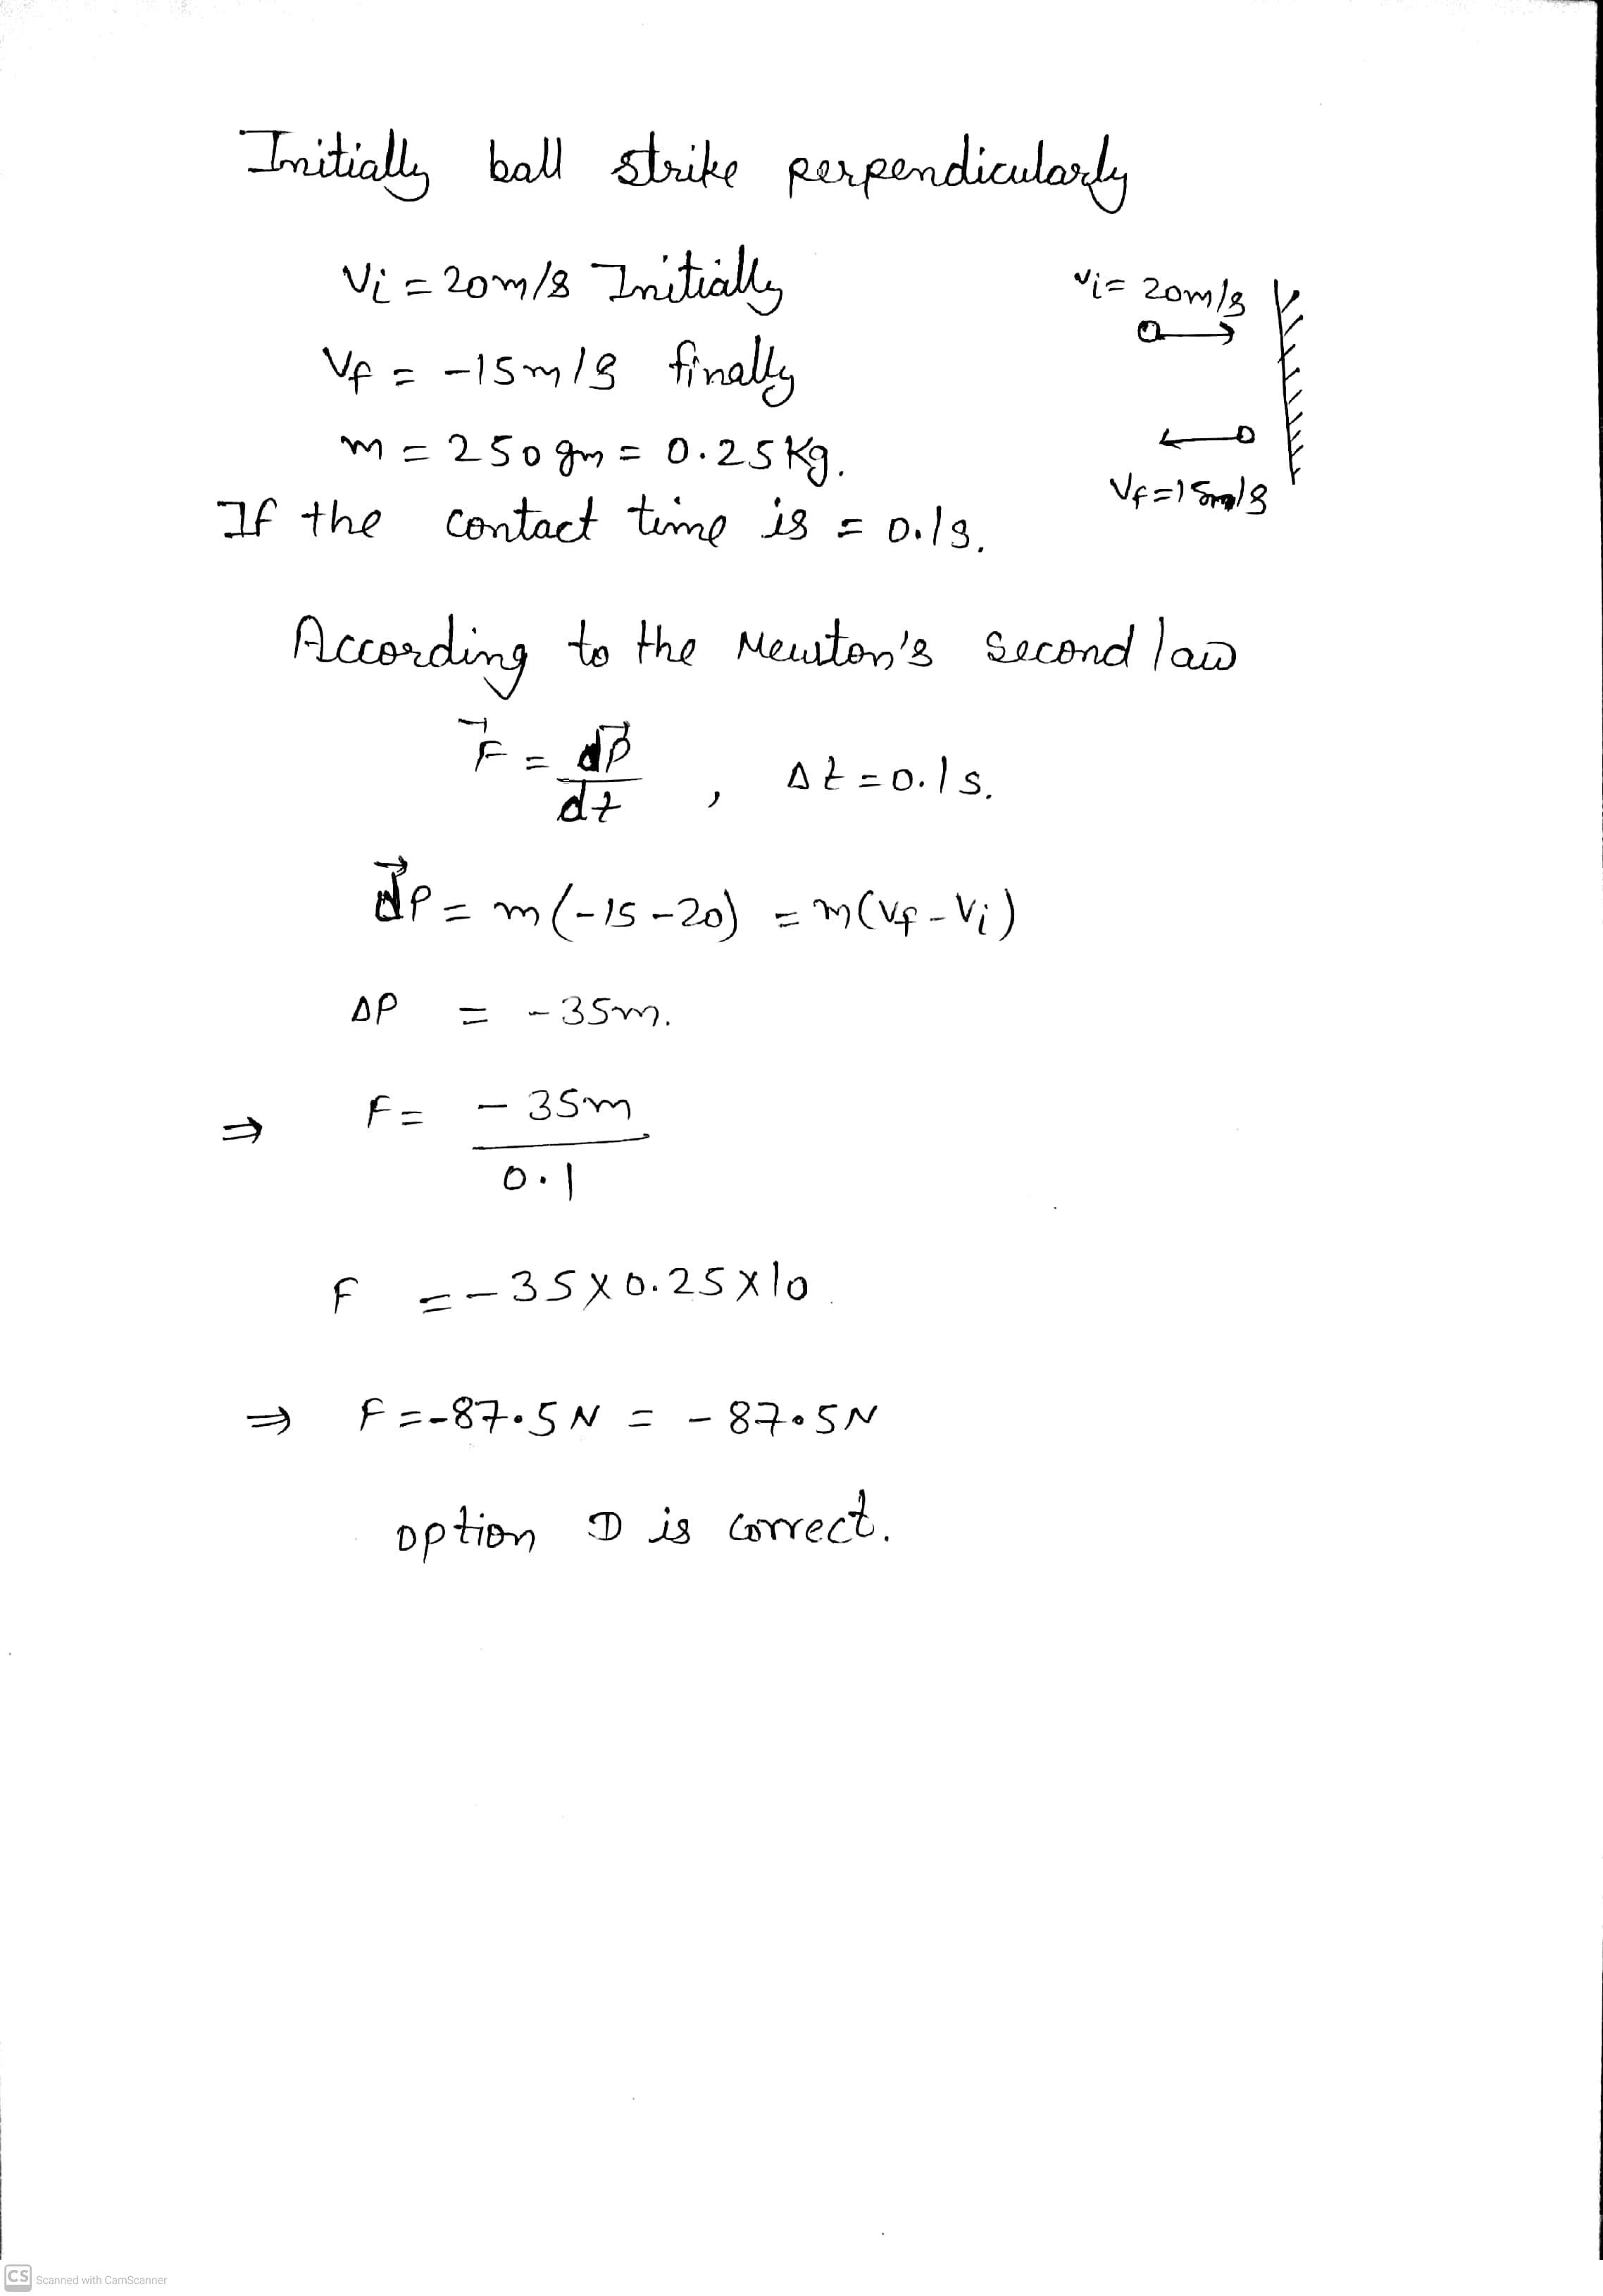 Initially ball strike perpendicularly
Vi = 20m/s Initially
Vi = 20m/s
Vf = -15m/s finally
m = 250 gm = 0.25 Kg.
Vf = 15m/s
If the contact time is = 0.1s.
According to the Newton's second law
F⃗ = dP⃗/dt , Δt = 0.1s.
dP⃗ = m(-15-20) = m(Vf - Vi)
ΔP = -35m.
⇒ F = -35m/0.1
F = -35 x 0.25 x 10
⇒ F = -87.5 N = -87.5 N
option D is correct.
CS Scanned with CamScanner